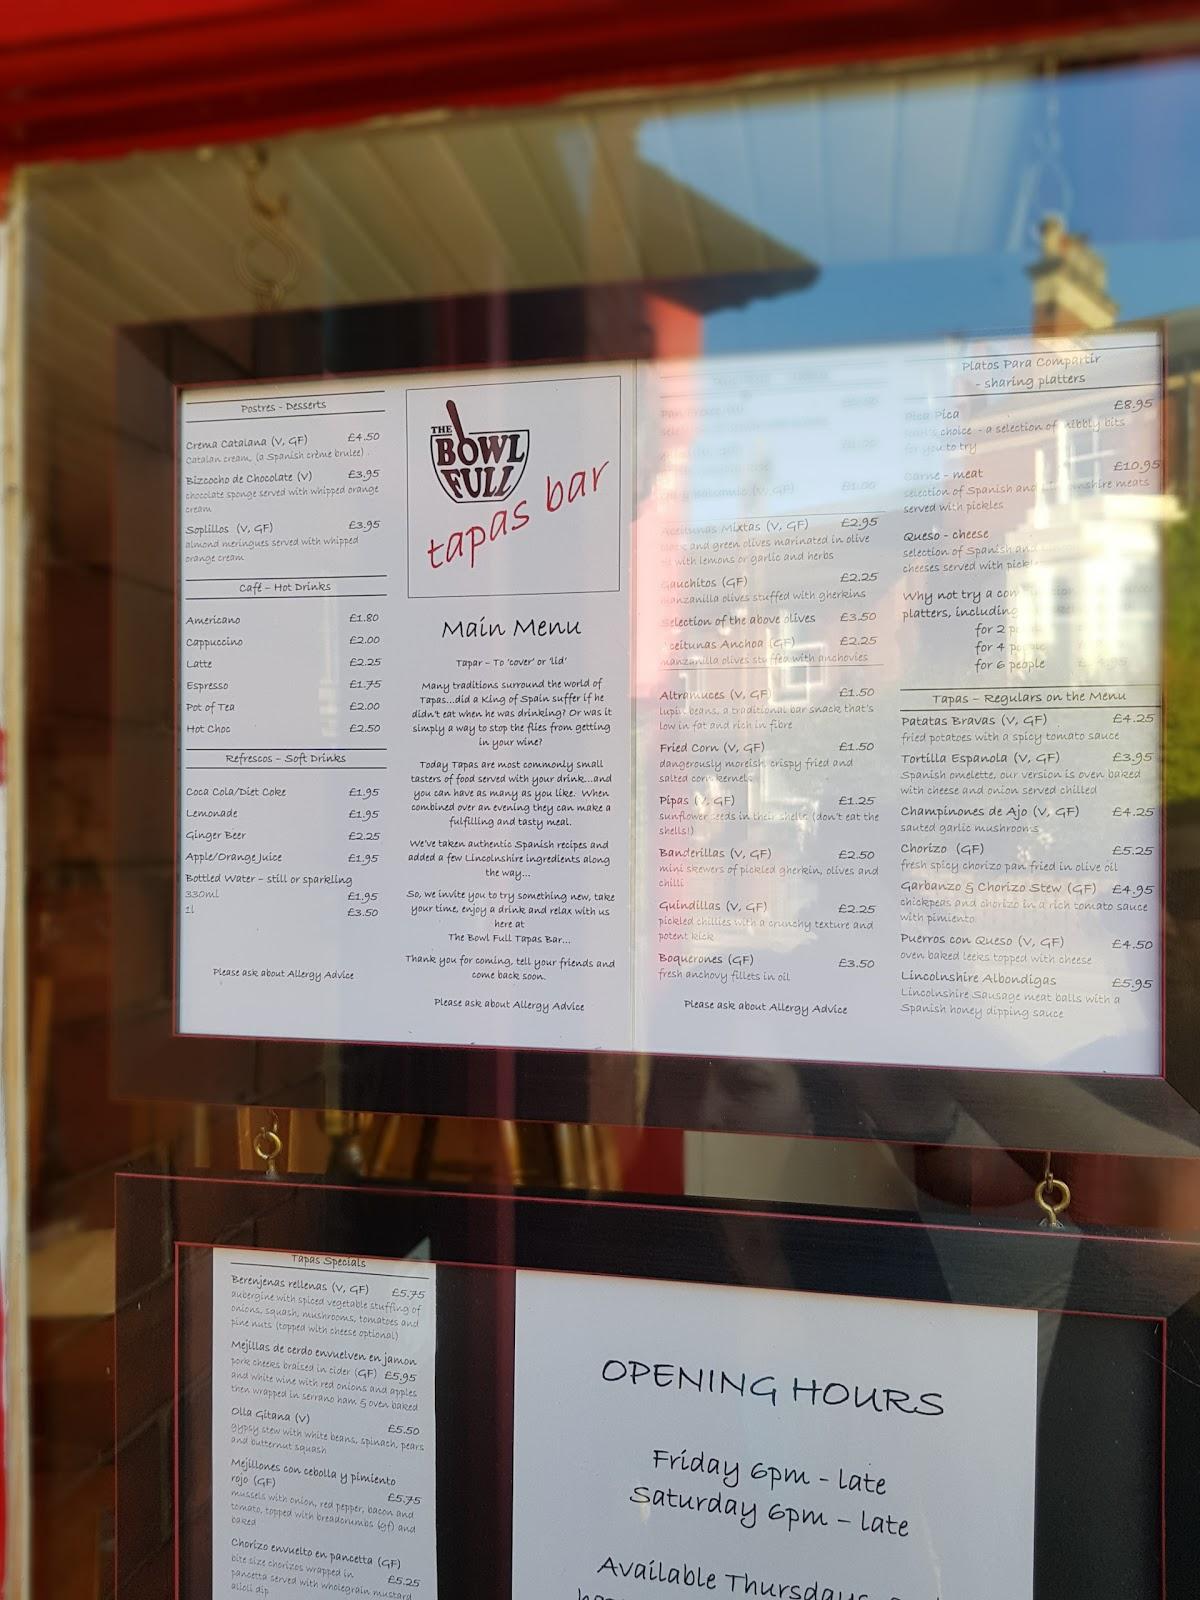 Postres - Desserts
Crema Catalana (V, GF) £4.50
Catalan cream, (a Spanish crème brulee)
Bizcocho de Chocolate (V) £3.95
chocolate sponge served with whipped orange
cream
Soplillos (V, GF) £3.95
almond meringues served with whipped
orange cream
Café - Hot Drinks
Americano £1.80
Cappuccino £2.00
Latte £2.25
Espresso £1.75
Pot of Tea £2.00
Hot Choc £2.50
Refrescos - Soft Drinks
Coca Cola/Diet Coke £1.95
Lemonade £1.95
Ginger Beer £2.25
Apple/Orange Juice £1.95
Bottled Water - still or sparkling
330ml £1.95
1l £3.50
Please ask about Allergy Advice
THE
BOWL
FULL
tapas bar
Main Menu
Tapar - To 'cover' or 'lid'
Many traditions surround the world of
Tapas...did a King of Spain suffer if he
didn't eat when he was drinking? Or was it
simply a way to stop the flies from getting
in your wine?
Today Tapas are most commonly small
tasters of food served with your drink...and
you can have as many as you like. When
combined over an evening they can make a
fulfilling and tasty meal.
We've taken authentic Spanish recipes and
added a few Lincolnshire ingredients along
the way...
So, we invite you to try something new, take
your time, enjoy a drink and relax with us
here at
The Bowl Full Tapas Bar...
Thank you for coming, tell your friends and
come back soon.
Please ask about Allergy Advice
£1.00
Aceitunas Mixtas (V, GF) £2.95
and green olives marinated in olive
with lemons or garlic and herbs
Gauchitos (GF) £2.25
manzanilla olives stuffed with gherkins
Selection of the above olives £3.50
Aceitunas Anchoa (GF) £2.25
manzanilla olives stuffed with anchovies
Altramuces (V, GF) £1.50
lupin beans, a traditional bar snack that's
low in fat and rich in fibre
Fried Corn (V, GF) £1.50
dangerously moreish, crispy fried and
salted corn kernels
Pipas (V, GF) £1.25
sunflower seeds in their shells (don't eat the
shells!)
Banderillas (V, GF) £2.50
mini skewers of pickled gherkin, olives and
chilli
Guindillas (V, GF) £2.25
pickled chillies with a crunchy texture and
potent kick
Boquerones (GF) £3.50
fresh anchovy fillets in oil
Please ask about Allergy Advice
Platos Para Compartir
- sharing platters
Pica Pica £8.95
choice - a selection of nibbly bits
for you to try
Carne - meat £10.95
selection of Spanish and meats
served with pickles
Queso - cheese
selection of Spanish and
cheeses served with pickles
Why not try a
platters, including
for 2
for 4
for 6 people
Tapas - Regulars on the Menu
Patatas Bravas (V, GF) £4.25
fried potatoes with a spicy tomato sauce
Tortilla Espanola (V, GF) £3.95
Spanish omelette, our version is oven baked
with cheese and onion served chilled
Champinones de Ajo (V, GF) £4.25
sauted garlic mushrooms
Chorizo (GF) £5.25
fresh spicy chorizo pan fried in olive oil
Garbanzo & Chorizo Stew (GF) £4.95
chickpeas and chorizo in a rich tomato sauce
with pimiento
Puerros con Queso (V, GF) £4.50
oven baked leeks topped with cheese
Lincolnshire Albondigas £5.95
Lincolnshire Sausage meat balls with a
Spanish honey dipping sauce
Tapas Specials
Berenjenas rellenas (V, GF) £5.75
aubergine with spiced vegetable stuffing of
onions, squash, mushrooms, tomatoes and
pine nuts (topped with cheese optional)
Mejillas de cerdo envuelven en jamon
pork cheeks braised in cider (GF) £5.95
and white wine with red onions and apples
then wrapped in serrano ham & oven baked
Olla Gitana (V) £5.50
gypsy stew with white beans, spinach, pears
and butternut squash
Mejillones con cebolla y pimiento
rojo (GF) £5.75
mussels with onion, red pepper, bacon and
tomato, topped with breadcrumbs (gf) and
baked
Chorizo envuelto en pancetta (GF)
bite size chorizos wrapped in £5.25
pancetta served with wholegrain mustard
alioli dip
OPENING HOURS
Friday 6pm - late
Saturday 6pm - late
Available Thursdays